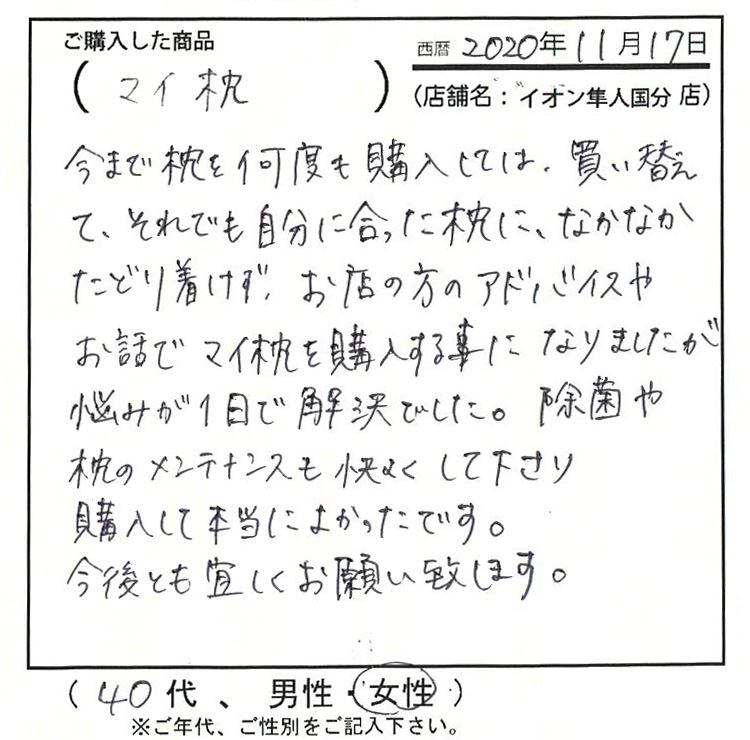 ご購入した商品
西暦 2020年11月17日
(マイ枕)
(店舗名：イオン隼人国分 店)
今まで枕を何度も購入しては、買い替え
て、それでも自分に合った枕に、なかなか
たどり着けず、お店の方のアドバイスや
お話でマイ枕を購入する事になりましたが
悩みが1日で解決でした。除菌や
枕のメンテナンスも快よくして下さり
購入して本当によかったです。
今後とも宜しくお願い致します。
(40代、男性・女性)
※ご年代、ご性別をご記入下さい。